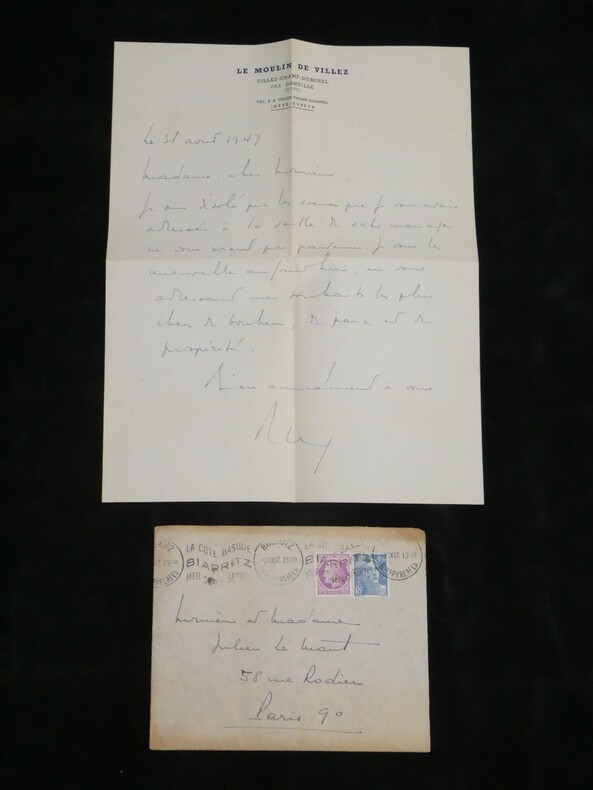 LE MOULIN DE VILLEZ
VILLEZ-CHAMP-DOMINEL
PAR DAMVILLE
(EURE)
TEL. N° 8 VILLEZ-CHAMP-DOMINEL
INTER-EVREUX
Le 31 août 1947
Madame, cher Monsieur,
Je suis désolé que les voeux que je vous avais
adressés à la veille de votre mariage
ne vous soient pas parvenus. Je vous les
renouvelle aujourd'hui, en vous
adressant mes souhaits les plus
chers de bonheur, de paix et de
prospérité.
Bien amicalement à vous
LA COTE BASQUE
BIARRITZ
MER
BIARRITZ
15H
BIARRITZ
PYRENEES
Monsieur et Madame
Julien Le
58 rue Rodier
Paris 9°